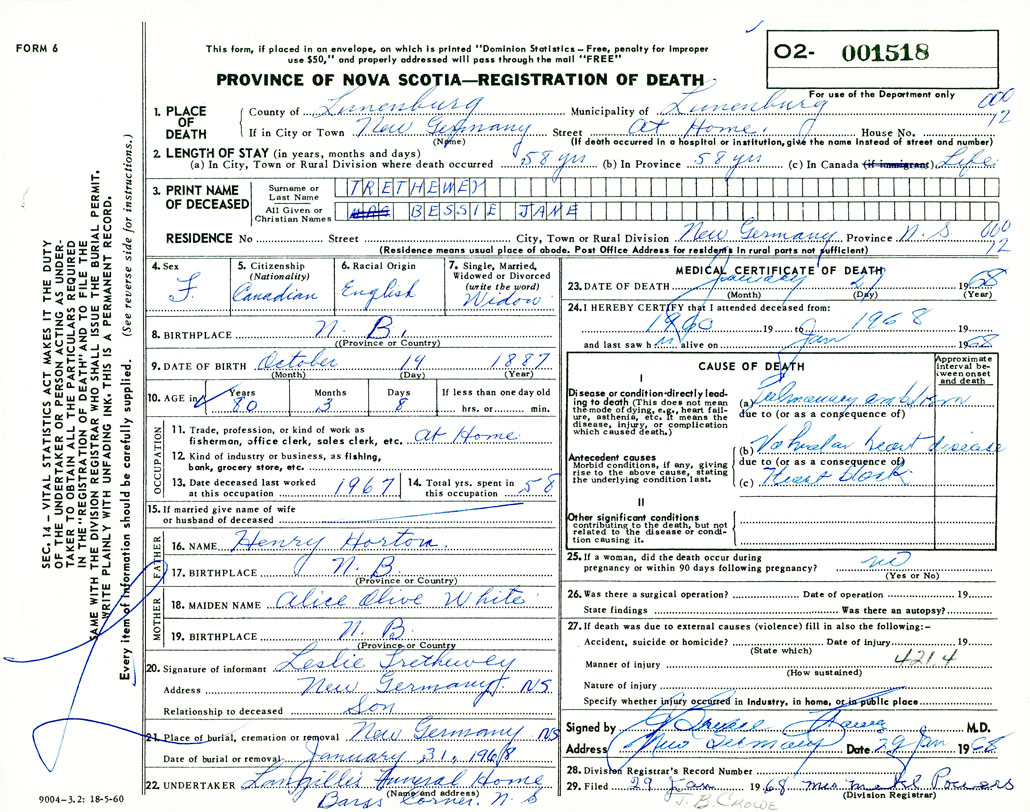 FORM 6
This form, if placed in an envelope, on which is printed "Dominion Statistics – Free, penalty for improper
use $50," and properly addressed will pass through the mail "FREE"
O2- 001518
PROVINCE OF NOVA SCOTIA—REGISTRATION OF DEATH
For use of the Department only
000
12
1. PLACE OF DEATH
County of Lunenburg Municipality of Lunenburg
If in City or Town New Germany Street At Home. House No.
(Name) (If death occurred in a hospital or institution, give the name instead of street and number)
2. LENGTH OF STAY (in years, months and days)
(a) In City, Town or Rural Division where death occurred 58 yrs (b) In Province 58 yrs (c) In Canada (if immigrant) Life
3. PRINT NAME OF DECEASED
Surname or Last Name TRETHEWEY
All Given or Christian Names MRS BESSIE JANE
RESIDENCE No Street City, Town or Rural Division New Germany Province N. S. 000
12
(Residence means usual place of abode. Post Office Address for residents in rural parts not sufficient)
4. Sex F.
5. Citizenship (Nationality) Canadian
6. Racial Origin English
7. Single, Married, Widowed or Divorced (write the word) Widow
8. BIRTHPLACE N. B.
(Province or Country)
9. DATE OF BIRTH October 19 1887
(Month) (Day) (Year)
10. AGE in Years 80 Months 3 Days 8 If less than one day old hrs. or min.
OCCUPATION
11. Trade, profession, or kind of work as
fisherman, office clerk, sales clerk, etc. at Home
12. Kind of industry or business, as fishing,
bank, grocery store, etc.
13. Date deceased last worked at this occupation 1967
14. Total yrs. spent in this occupation 58
15. If married give name of wife
or husband of deceased
FATHER
16. NAME Henry Horton
17. BIRTHPLACE N. B.
(Province or Country)
MOTHER
18. MAIDEN NAME Alice Olive White
19. BIRTHPLACE N. B.
(Province or Country)
20. Signature of informant Leslie Trethewey
Address New Germany. NS
Relationship to deceased Son
21. Place of burial, cremation or removal New Germany NS
Date of burial or removal January 31, 1968
22. UNDERTAKER Langille's Funeral Home
(Name and address)
Barss Corner, N. S
9004-3.2: 18-5-60
MEDICAL CERTIFICATE OF DEATH
23. DATE OF DEATH January 27 1968
(Month) (Day) (Year)
24. I HEREBY CERTIFY that I attended deceased from:
1960 19 to 1968 19
and last saw h er alive on Jan 1968
CAUSE OF DEATH
Approximate interval between onset and death
I
Disease or condition directly leading to death (This does not mean the mode of dying, e.g., heart failure, asthenia, etc. It means the disease, injury, or complication which caused death.)
(a) Pulmonary embolism
due to (or as a consequence of)
Antecedent causes
Morbid conditions, if any, giving rise to the above cause, stating the underlying condition last.
(b) Valvular heart disease
due to (or as a consequence of)
(c) Heart block
II
Other significant conditions
contributing to the death, but not related to the disease or condition causing it.
25. If a woman, did the death occur during
pregnancy or within 90 days following pregnancy? no
(Yes or No)
26. Was there a surgical operation? Date of operation 19
State findings Was there an autopsy?
27. If death was due to external causes (violence) fill in also the following:–
Accident, suicide or homicide? Date of injury 19
(State which)
4214
Manner of injury
(How sustained)
Nature of injury
Specify whether injury occurred in Industry, in home, or in public place
Signed by M.D.
Address New Germany Date 29 Jan 1968
28. Division Registrar's Record Number
29. Filed 29 Jan 1968 Powers
(Division Registrar)
J. B. CROWE
SEC. 14 – VITAL STATISTICS ACT MAKES IT THE DUTY
OF THE UNDERTAKER OR PERSON ACTING AS UNDER-
TAKER TO OBTAIN ALL THE PARTICULARS REQUIRED
IN THE "REGISTRATION OF DEATH" AND TO FILE THE
SAME WITH THE DIVISION REGISTRAR WHO SHALL ISSUE THE BURIAL PERMIT.
WRITE PLAINLY WITH UNFADING INK. THIS IS A PERMANENT RECORD.
Every item of information should be carefully supplied. (See reverse side for instructions.)